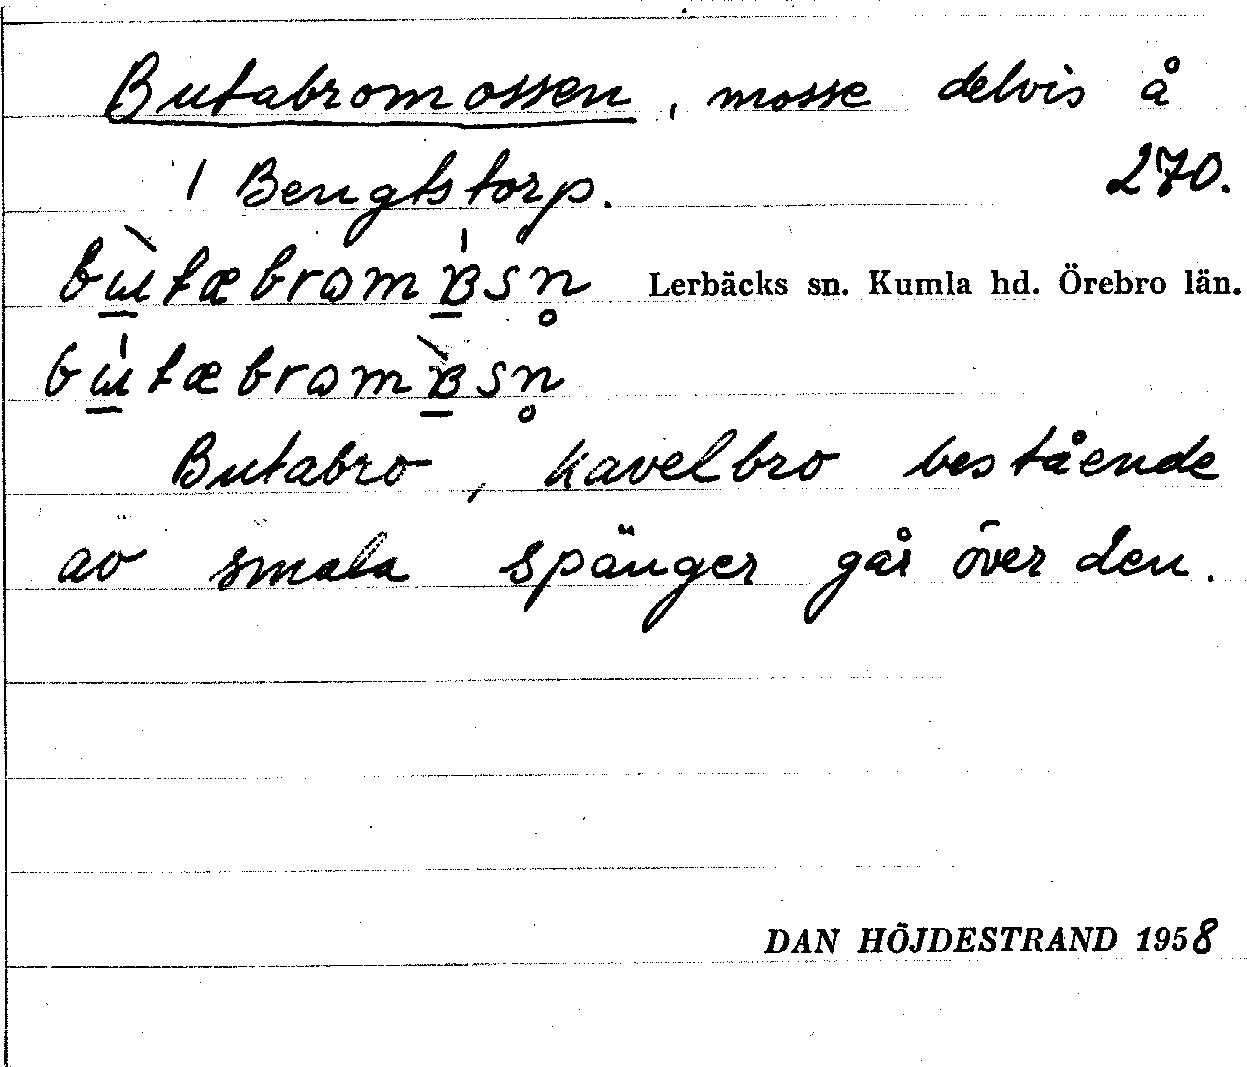 Butabromossen, mosse delvis å
1 Bengtstorp. 270.
Lerbäcks sn. Kumla hd. Örebro län.
Butabro, kavelbro bestående
av smala spänger går över den.
DAN HÖJDESTRAND 1958